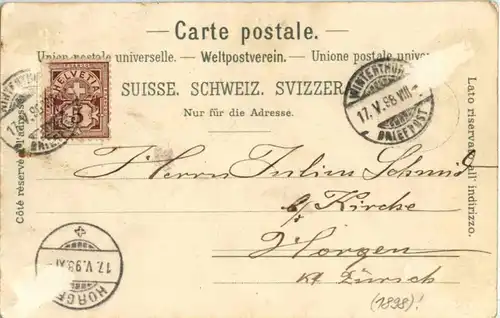 Carte postale.
Union postale universelle. — Weltpostverein. — Unione postale univer
SUISSE. SCHWEIZ. SVIZZER
Nur für die Adresse.
HELVETIA
5
WINTERTHUR
17.V.98.VIII
BRIEFPOST
17.V.98
BRIEF
Côté réservé à l'adresse
Lato riservato all' indirizzo.
Herrn Julius Schmid
b/ Kirche
Horgen
Kt. Zürich
17.V.98.XI
HORGE
(1898)!